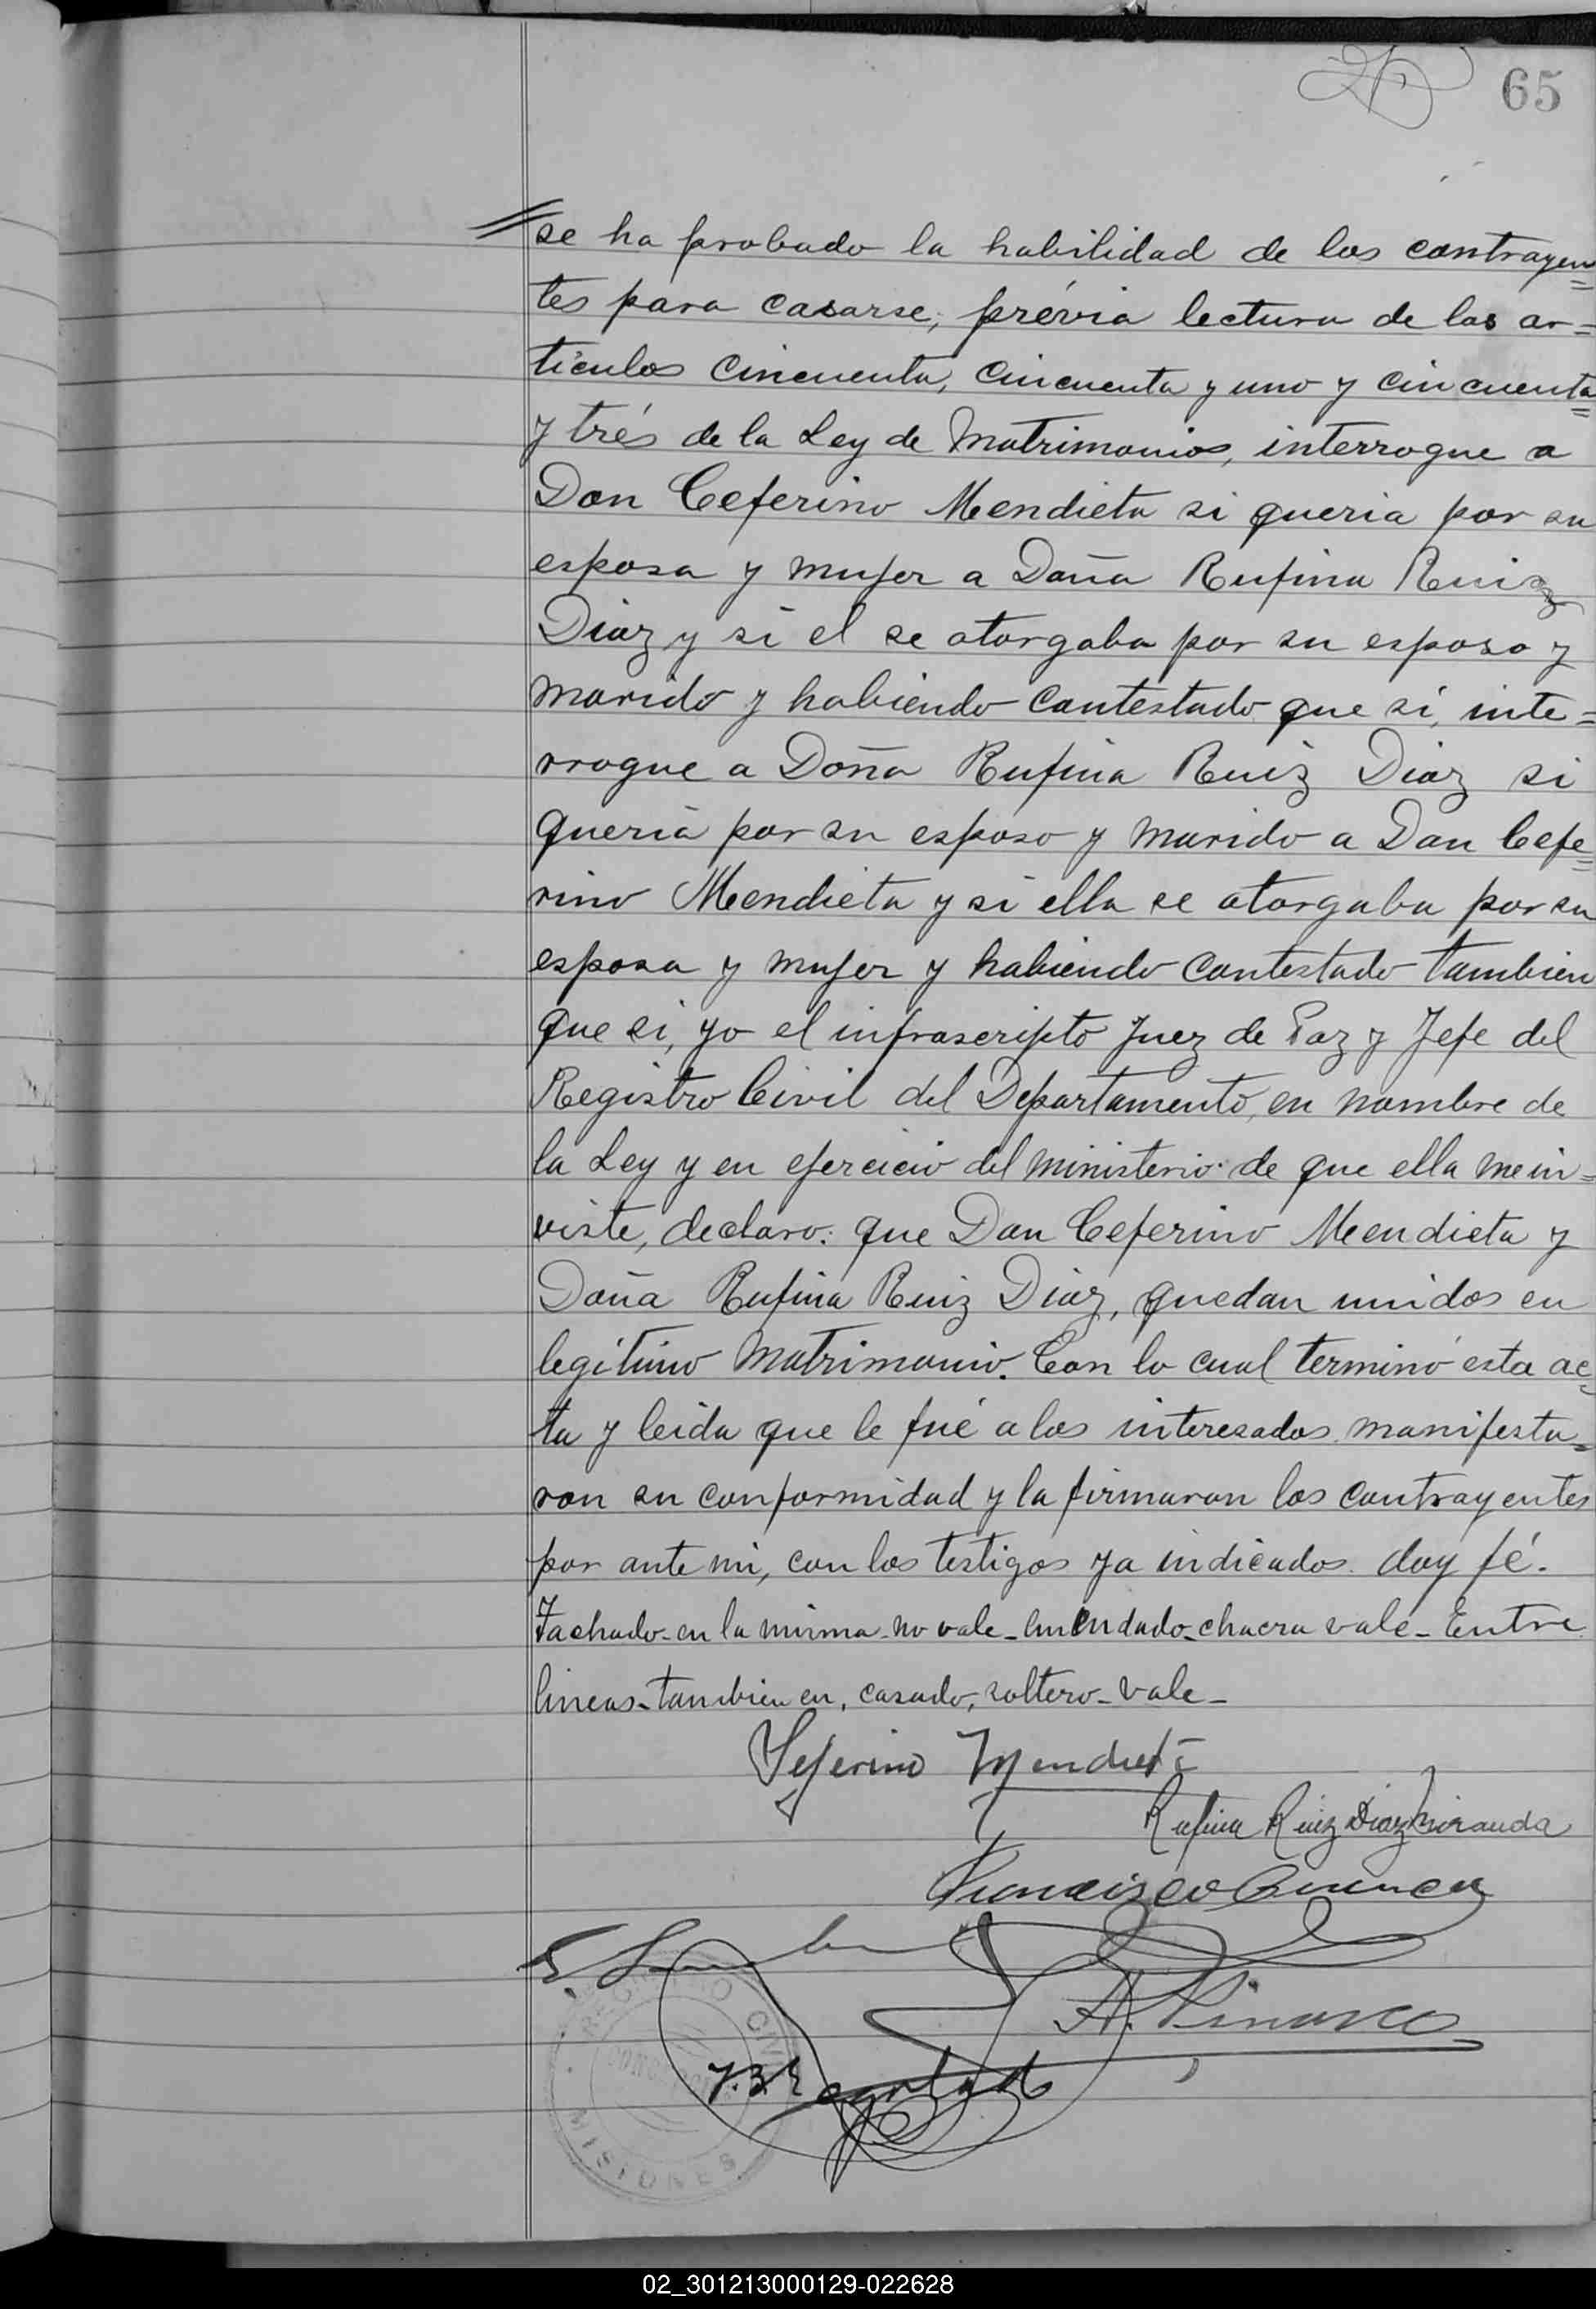 65
se ha probado la habilidad de los contrayen=
tes para casarse, prévia lectura de los ar=
tículos cincuenta, cincuenta y uno y cincuenta=
y trés de la Ley de Matrimonios, interrogue a
Don Ceferino Mendieta si queria por su
esposa y mujer a Doña Rufina Ruiz
Diaz y si el se otorgaba por su esposo y
marido y habiendo contestado que si, inte=
rrogue a Doña Rufina Ruiz Diaz si
queria por su esposo y marido a Don Cefe=
rino Mendieta y si ella se otorgaba por su
esposa y mujer y habiendo contestado tambien
que si, yo el infrascripto Juez de Paz y Jefe del
Registro Civil del Departamento, en nombre de
la Ley y en ejercicio del ministerio de que ella me in=
viste, declaro: que Don Ceferino Mendieta y
Doña Rufina Ruiz Diaz, quedan unidos en
legítimo Matrimonio. Con lo cual terminó esta ac=
ta y leida que le fué a los interesados manifesta=
ron su conformidad y la firmaron los contrayentes
por ante mi, con los testigos ya indicados. doy fé.
Tachado-en la misma-no vale-enmendado-chacra vale-Entre
lineas-tambien en, casado, soltero-vale-
Seferino Mendieta
Rufina Ruiz Diaz Miranda
Francisco
A.
REGISTRO CIVIL
MISIONES
02_301213000129-022628